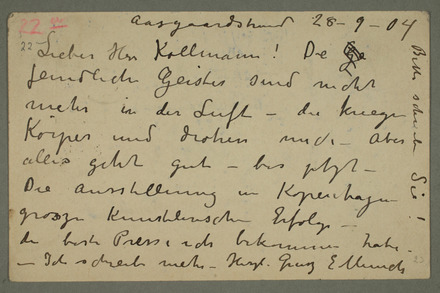 22
Aasgaardstrand 28-9-04
22 Lieber Herr Kollmann! Die
feindlichen Geister sind nicht
mehr in der Luft – die kriegen
Körper und drohen mich – Aber
alles geht gut – bis jetzt –
Die Ausstellung in Kopenhagen
grosze Künstlerischen Erfolge –
die beste Presse ich bekommen habe –
– Ich schreibe mehr – Herzl. Gruss E Munch
Bitte schreiben Sie!